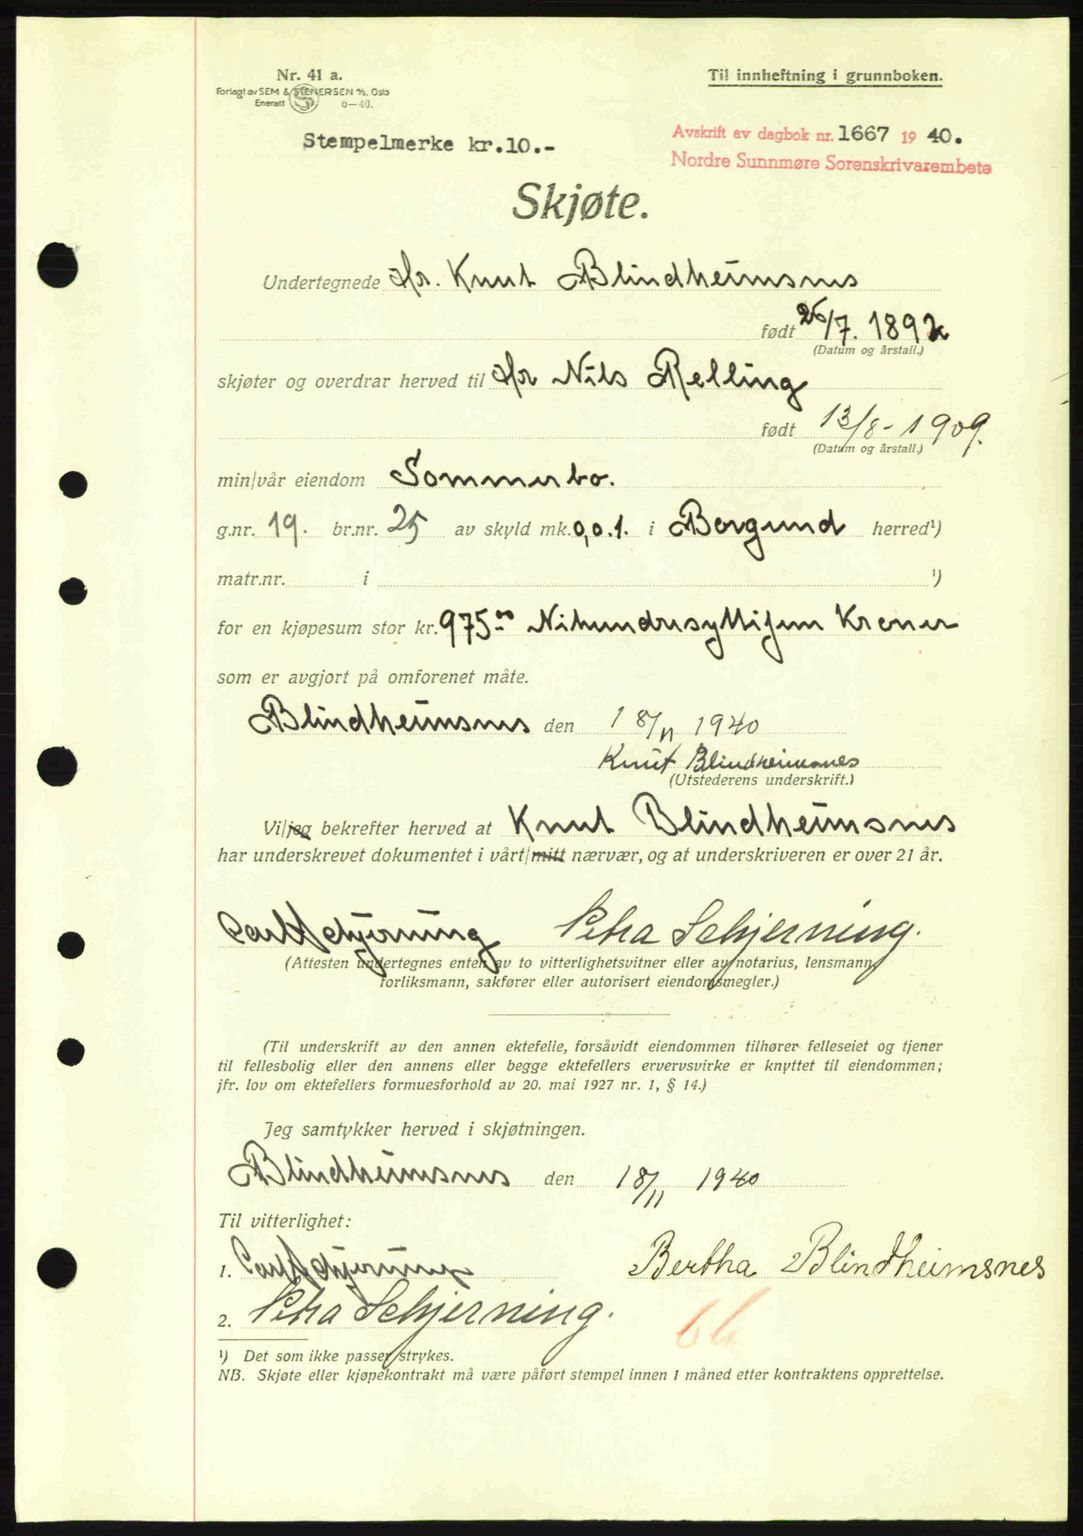 Nr. 41 a.
Forlagt av SEM & STENERSEN A/S, Oslo
Enerett 6-40.
Til innheftning i grunnboken.
Stempelmerke kr.10.-
Avskrift av dagbok nr. 1667 1940.
Nordre Sunnmøre Sorenskrivarembete
Skjøte.
Undertegnede Hr. Knut Blindheimsnes
født 26/7. 1892
(Datum og årstall.)
skjøter og overdrar herved til Hr Nils Relling
født 13/8- 1909.
(Datum og årstall.)
min/vår eiendom Sommerbo.
g.nr. 19. br.nr. 25 av skyld mk. 0,01. i Borgund herred¹)
matr.nr. i ¹)
for en kjøpesum stor kr. 975.00 Nihundresyttifem Kroner
som er avgjort på omforenet måte.
Blindheimsnes den 18/11 1940
Knut Blindheimsnes
(Utstederens underskrift.)
Vi/jeg bekrefter herved at Knut Blindheimsnes
har underskrevet dokumentet i vårt/mitt nærvær, og at underskriveren er over 21 år.
Carl Schjerning Petra Schjerning.
(Attesten undertegnes enten av to vitterlighetsvitner eller av notarius, lensmann,
forliksmann, sakfører eller autorisert eiendomsmegler.)
(Til underskrift av den annen ektefelle, forsåvidt eiendommen tilhører felleseiet og tjener
til fellesbolig eller den annens eller begge ektefellers ervervsvirke er knyttet til eiendommen;
jfr. lov om ektefellers formuesforhold av 20. mai 1927 nr. 1, § 14.)
Jeg samtykker herved i skjøtningen.
Blindheimsnes den 18/11 1940
Til vitterlighet:
1. Carl Schjerning Bertha Blindheimsnes
2. Petra Schjerning.
¹) Det som ikke passer strykes.
NB. Skjøte eller kjøpekontrakt må være påført stempel innen 1 måned etter kontraktens opprettelse.